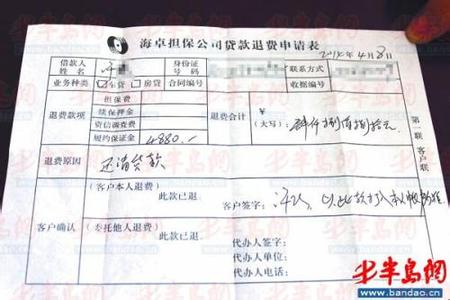 海卓担保公司贷款退费申请表
2012年4月8日
借款人姓名 身份证号码 联系方式
业务种类 车贷 房贷 合同编号 收据编号
退费款项 担保费 退费合计 ¥
续保押金 (大写): 肆仟捌佰捌拾元
资信调查费
履约保证金 4880.-
退费原因 还清贷款
客户确认 (客户本人退费)
此款已退. 客户签字:
(委托他人退费)
此款已退. 代办人签字:
代办人单位:
代办人电话:
第 联 客户联
半岛网
www.bandao.cn